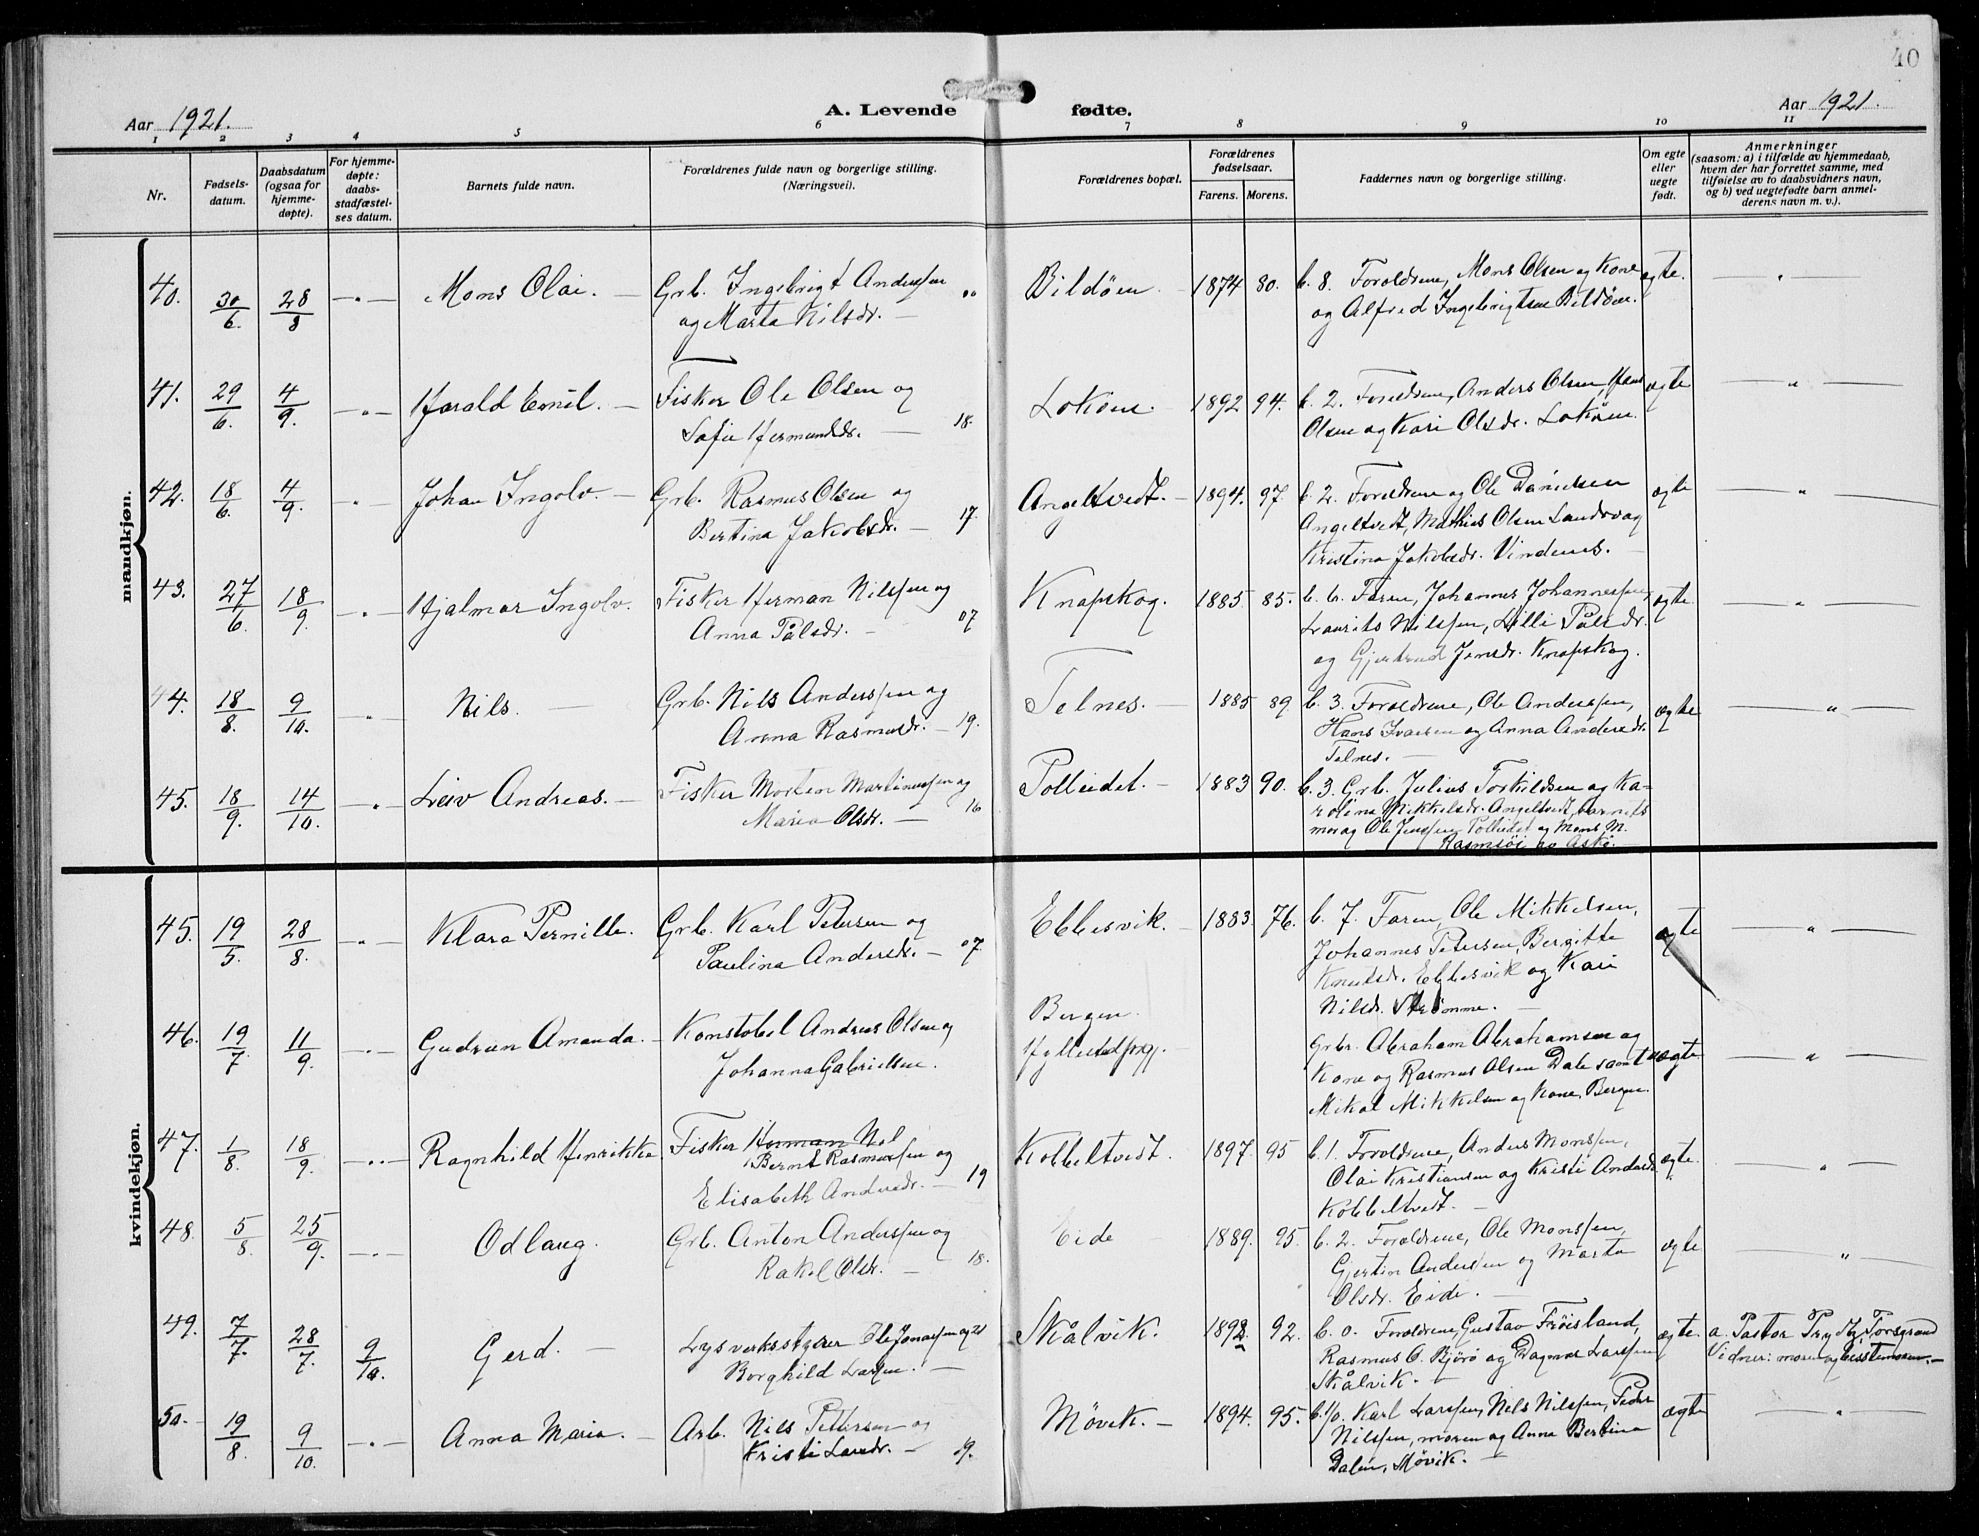 40
Aar 1921.
A. Levende fødte.
Aar 1921.
1 2 3 4 5 6 7 8 9 10 11
Nr.
Fødsels-
datum.
Daabsdatum
(ogsaa for
hjemme-
døpte).
For hjemme-
døpte:
daabs-
stadfæstel-
ses datum.
Barnets fulde navn.
Forældrenes fulde navn og borgerlige stilling.
(Næringsvei).
Forældrenes bopæl.
Forældrenes
fødselsaar.
Farens. Morens.
Faddernes navn og borgerlige stilling.
Om egte
eller
uegte
født.
Anmerkninger
(saasom: a) i tilfælde av hjemmedaab,
hvem der har forrettet samme, med
tilføielse av to daabsvidners navn,
og b) ved uegtefødte barn anmel-
derens navn m. v.).
mandkjøn.
40. 30/6. 28/8 —„— Mons Olai. — Grb. Ingebrigt Anderssen
og Marta Nilsdr. — Bildöen. 1874 80. b. 8. Foreldrene, Mons Olsen og Kone
og Alfred Ingebrigtsen Bildöen. ægte. —„—
41. 29/6. 4/9. —„— Harald Emil. — Fisker Ole Olsen og
Sofie Hermundsdr. — 18. Lokøen. 1892 94. b. 2. Foreldrene, Anders Olsen, Hans
Olsen og Kari Olsdr. Lokøen. ægte —„—
42. 18/6. 4/9. —„— Johan Ingolv. — Grb. Rasmus Olsen og
Bertina Jakobsdr. — 17. Angeltvedt. — 1894. 97. b. 2. Foreldrene og Ole Danielsen
Angeltvedt, Mathias Olsen Landro og
Kristina Jakobsdr. Vindenes. — ægte —„—
43. 27/6. 18/9. —„— Hjalmar Ingolv. Fisker Herman Nilssen og
Anna Pålsdr. — 07 Knapskog. 1885 85. b. 6. Faren, Johannes Johannessen,
Laurits Nilssen, Lilli Pålsdr.
og Gjertrud Jensdr. Knapskog. ægte —„—
44. 18/8. 9/10. —„— Nils. — Grb. Nils Anderssen og
Anna Rasmusdr. — 19. Telnes. — 1885 89 b. 3. Foreldrene, Ole Anderssen,
Hans Ivarsen og Anna Andersdr.
Telnes. — ægte —„—
45. 18/9. 14/10. —„— Leiv Andreas. — Fisker Morten Martinussen og
Maria Olsdr. — 16 Polleidet. — 1883 90. b. 3. Grb. Julius Torkildsen og Ka-
rolina Mikkelsdr. Angeltvedt, barnets
mor og Ole Jenssen Polleidet og Mons M.
kvindekjøn.
45. 19/5. 28/8. —„— Klara Pernille. Grb. Karl Petersen og
Paulina Andersdr. — 07. Ebbesvik. — 1883. 76. b. 7. Faren, Ole Mikkelsen,
Johannes Petersen, Bergitte
Knutsdr. Ebbesvik og Kari
Nilsdr. Strømme. — ægte —„—
46. 19/7. 11/9. —„— Gudrun Amanda. — Konstabel Andreas Olsen og
Johanna Gabrielsen. Bergen.
Grbr. Abraham Abrahamsen og
Kone og Rasmus Olsen Dale samt
Mikal Mikkelsen og Kone, Bergen. ægte —„—
47. 1/8. 18/9. —„— Ragnhild Henrikka. Fisker Herman Nil
Bernt Rasmussen og
Elisabeth Andersdr. — 19 Kobbeltvedt. 1897. 95 b. 1. Foreldrene, Anders Monssen,
Olai Kristiansen og Kristi Andersdr.
Kobbeltvedt. — ægte. —„—
48. 5/8. 25/9. —„— Odlaug. Grb. Anton Anderssen og
Rakel Olsdr. — 18. Eide — 1889. 95. b. 2. Foreldrene, Ole Monssen,
Gjertin Anderssen og Marta
Olsdr. Eide. — ægte —„—
49. 7/7. 28/7. 9/10. Gerd. — Lysverksstyrer Ole Jonassen og 21
Borghild Larsen. — Skålvik. 1892 92. b. 0. Foreldrene, Gustav Frøisland,
Rasmus O. Bjørø og Dagmar Larssen
Skålvik. — ægte. a. Pastor Prydtz, Torsgrund
Vidner: moren og bestemoren. —
50. — 19/8. 9/10. —„— Anna Maria. — Arb. Nils Pettersen og
Kristi Larsdr. — 19. Møvik. — 1894. 95. b. 1/0. Karl Larssen, Nils Nilssen, Peder
Nilssen, moren og Anna Bertina
Dalen, Møvik. — ægte —„—